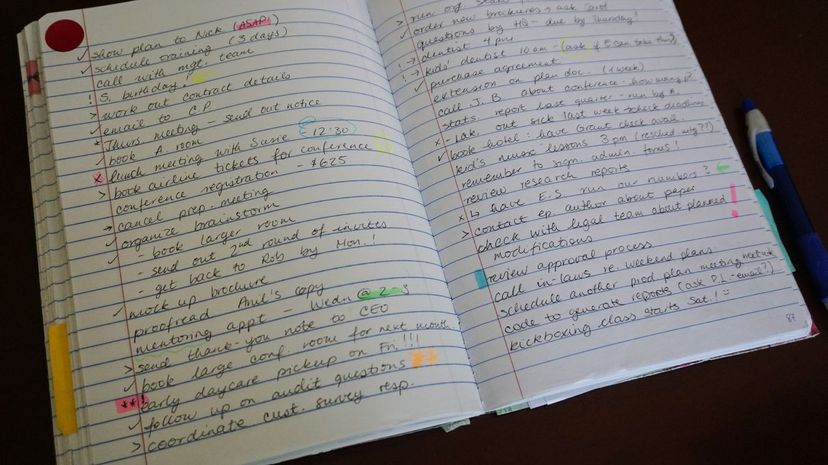 ✓ show plan to Nick (ASAP!)
✓ schedule training (3 days)
call with mgt. team
! S. birthday!
> work out contract details
✓ email to CP
* Thurs. meeting - send out notice
✓ book A. room
x lunch meeting with Susie (12:30)
> book airline tickets for conference
conference registration - $625
→ cancel prep. meeting
✓ organize brainstorm
- book larger room
- send out 2nd round of invites
- get back to Rob by Mon.!
✓ mock up brochure
proofread Anil's copy
mentoring appt - Wedn @ 2-3
> send thank-you note to CEO
✓ book large conf. room for next month
**! early daycare pickup on Fri.!!!
✓ follow up on audit questions
> coordinate cust. survey resp.
> run org.
✓ order new brochures → ask
questions by HQ - due by Thursday!
!→ dentist 4 pm
!→ kids' dentist 10 am - (ask if S can take them)
✓ purchase agreement
✓ extension on plan doc. (1 week)
call J.B. about conference -
stats. report last quarter - run by A.
x - Lak. out sick last week → check deadlines
✓ book hotel: have Grant check avail.
kid's music lessons 3 pm (resched mtg?!)
remember to sign. admin forms!
review research reports
x ↳ have E.S. run our numbers?
> contact ep. author about paper
check with legal team about planned
modifications
review approval process
call in-laws re. weekend plans
schedule another prod plan meeting
code to generate reports (ask P.L. - email?)
kickboxing class starts Sat.!
87